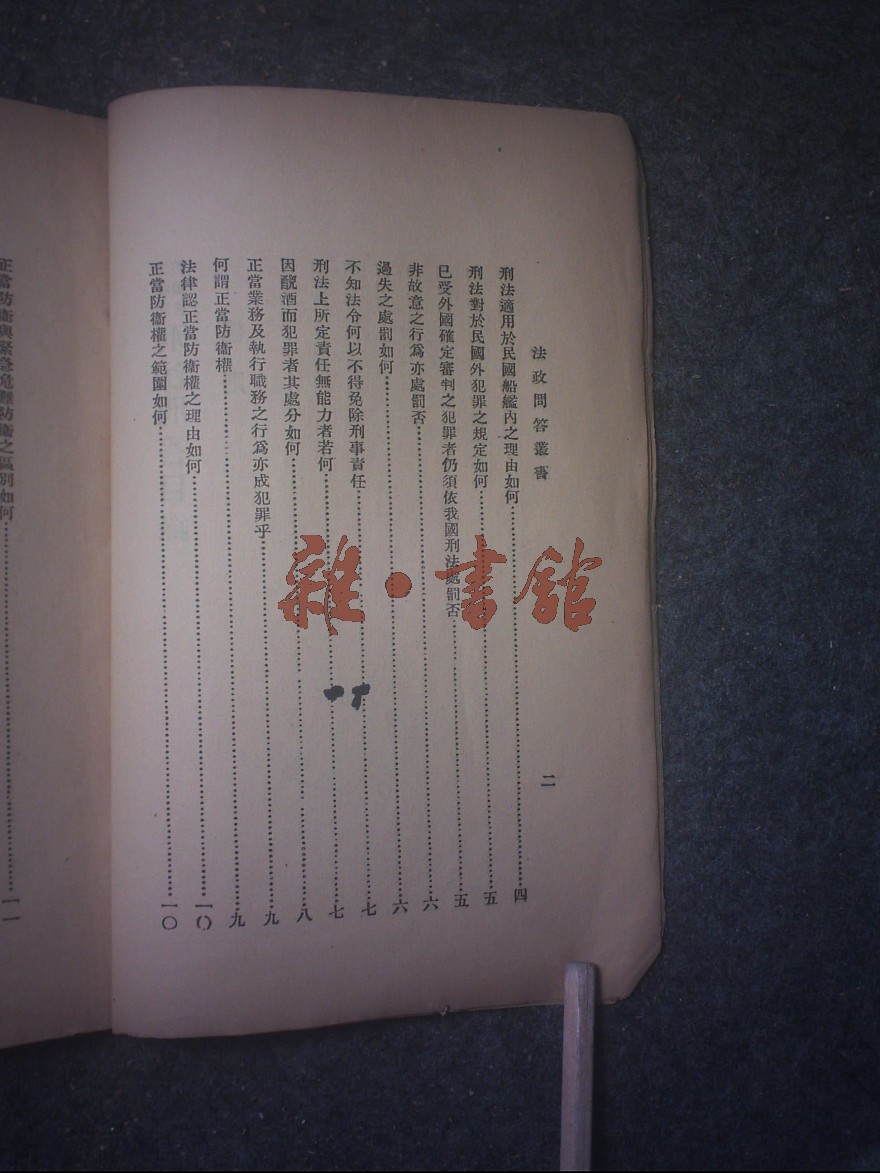 法政問答叢書
二
刑法適用於民國船艦內之理由如何…………四
刑法對於民國外犯罪之規定如何…………五
已受外國確定審判之犯罪者仍須依我國刑法處罰否…………五
非故意之行爲亦處罰否…………六
過失之處罰如何…………六
不知法令何以不得免除刑事責任…………七
刑法上所定責任無能力者若何…………七
因醜酒而犯罪者其處分如何…………八
正當業務及執行職務之行爲亦成犯罪乎…………九
何謂正當防衞權…………九
法律認正當防衞權之理由如何…………一〇
正當防衞權之範圍如何…………一〇
正當防衞與緊急危難防衞之區別如何…………一一
雜·書館